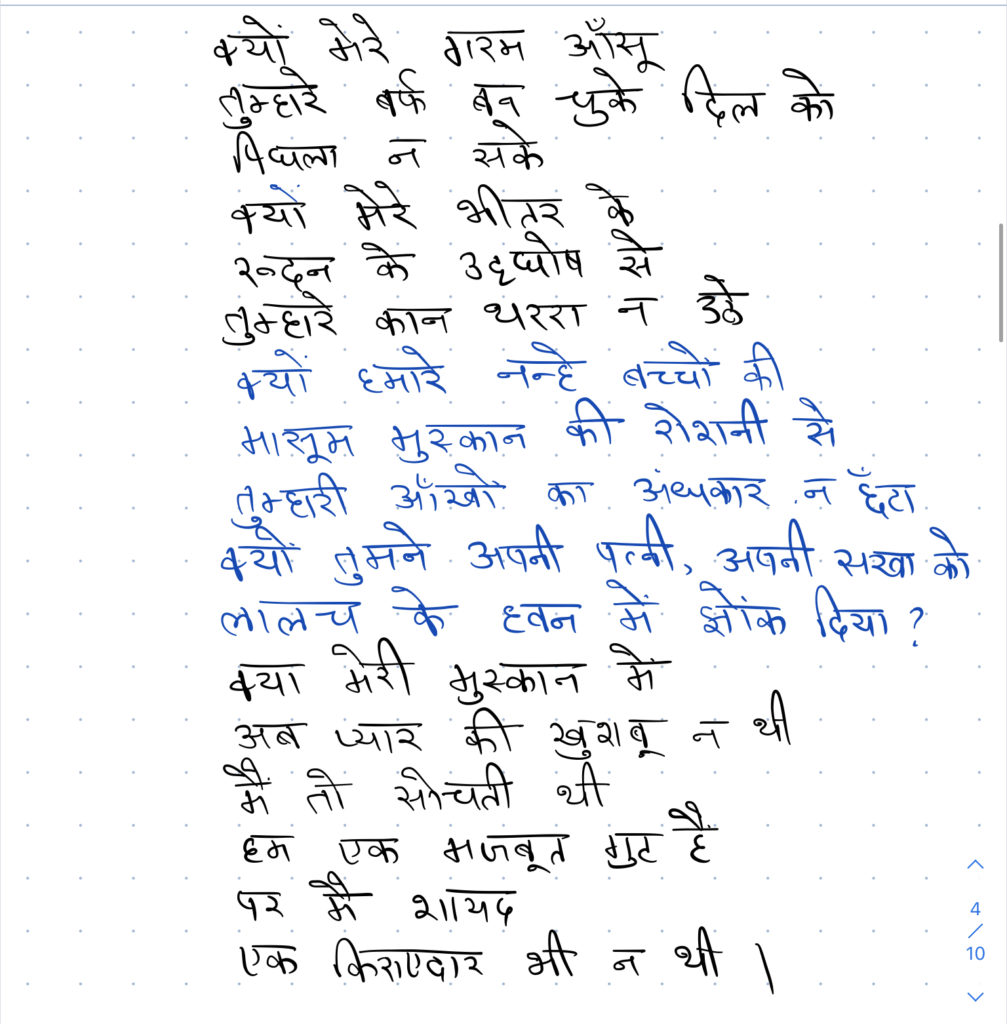 क्यों मेरे गरम आँसू
तुम्हारे बर्फ बन चुके दिल को
पिघला न सके
क्यों मेरे भीतर के
रुन्दन के उद्घोष से
तुम्हारे कान थररा न उठे
क्यों हमारे नन्हे बच्चों की
मासूम मुस्कान की रोशनी से
तुम्हारी आँखों का अंधकार न छँटा
क्यों तुमने अपनी पत्नी, अपनी सखा को
लालच के हवन में झोंक दिया ?
क्या मेरी मुस्कान में
अब प्यार की खुशबू न थी
मैं तो सोचती थी
हम एक मजबूत गुट हैं
पर मैं शायद
एक किराएदार भी न थी ।
4
/
10